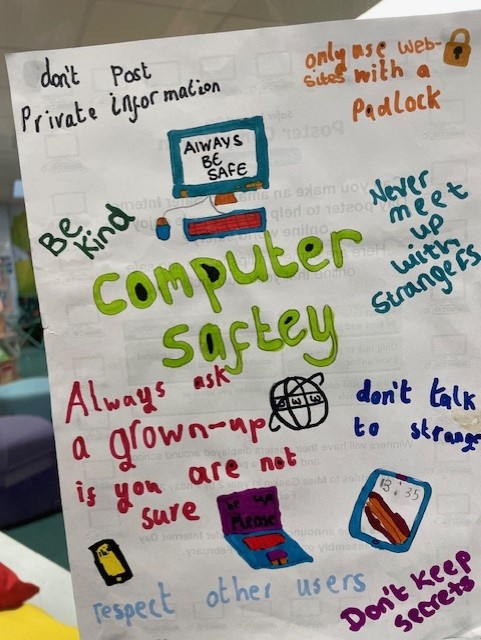 don't Post
Private information
only use web-
sites with a
Padlock
AlWAYS
BE
SAFE
Be
kind
Never
meet
up
with
strangers
computer
saftey
Always ask
a grown-up
is you are not
sure
www
don't talk
to strange
up
Please
13:35
respect other users
Don't keep
secrets